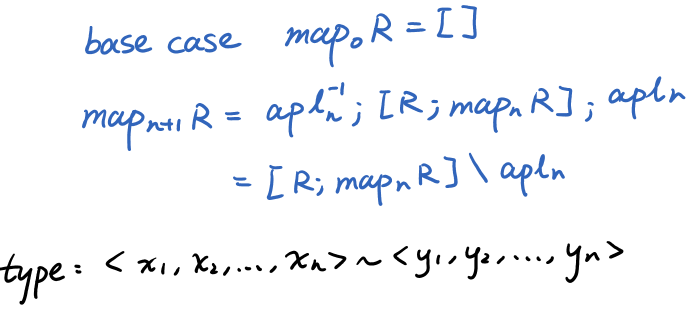 base case map₀ R = [ ]
mapₙ₊₁ R = aplₙ⁻¹ ; [R ; mapₙ R] ; aplₙ
= [R ; mapₙ R] \ aplₙ
type : < x₁, x₂, ..., xₙ > ~ < y₁, y₂, ..., yₙ >